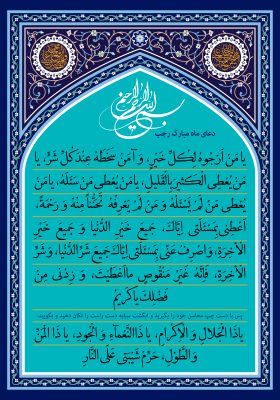 بسم الله الرحمن الرحیم
دعای ماه مبارک رجب
يا مَنْ أَرْجُوهُ لِكُلِّ خَيْرٍ، وَ آمَنُ سَخَطَهُ عِنْدَ كُلِّ شَرٍّ، يا
مَنْ يُعْطِى الْكَثيرَ بِالْقَليلِ، يامَنْ يُعْطى مَنْ سَئَلَهُ، يامَنْ
يُعْطى مَنْ لَمْ يَسْئَلْهُ وَ مَنْ لَمْ يَعْرِفْهُ تَحَنُّناً مِنْهُ وَ رَحْمَةً،
أَعْطِنى بِمَسْئَلَتى إِيَّاكَ، جَميعَ خَيْرِ الدُّنْيا وَ جَميعَ خَيْرِ
الْآخِرَةِ، وَاصْرِفْ عَنّى بِمَسْئَلَتى إِيَّاكَ جَميعَ شَرِّ الدُّنْيا، وَ شَرِّ
الْآخِرَةِ، فَإِنَّهُ غَيْرُ مَنْقُوصٍ ما أَعْطَيْتَ، وَ زِدْنى مِنْ
فَضْلِكَ يا كَريمُ
پس با دست چپ، محاسن خود را بگیرید و انگشت سبابه دست راست را تکان دهید و بگویید:
يا ذَا الْجَلالِ وَ الْإِكْرامِ، يا ذَا النَّعْماءِ وَ الْجُودِ، يا ذَا الْمَنِّ
وَ الطَّوْلِ، حَرِّمْ شَيْبَتى عَلَى النَّارِ